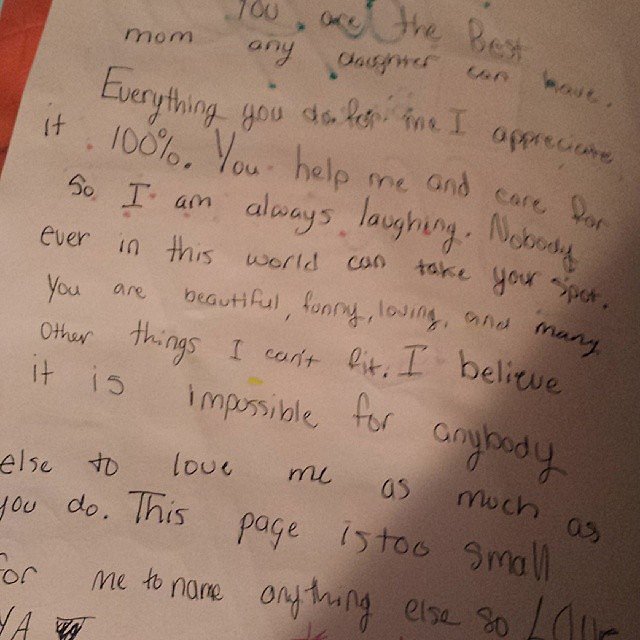 You are the Best
mom any daughter can have.
Everything you do for me I appreciate
it 100%. You help me and care for
So I am always laughing. Nobody
ever in this world can take your spot.
You are beautiful, funny, loving, and many
Other things I can't fit. I believe
it is impossible for anybody
else to love me as much as
you do. This page is too small
for me to name anything else so LOVE
YA